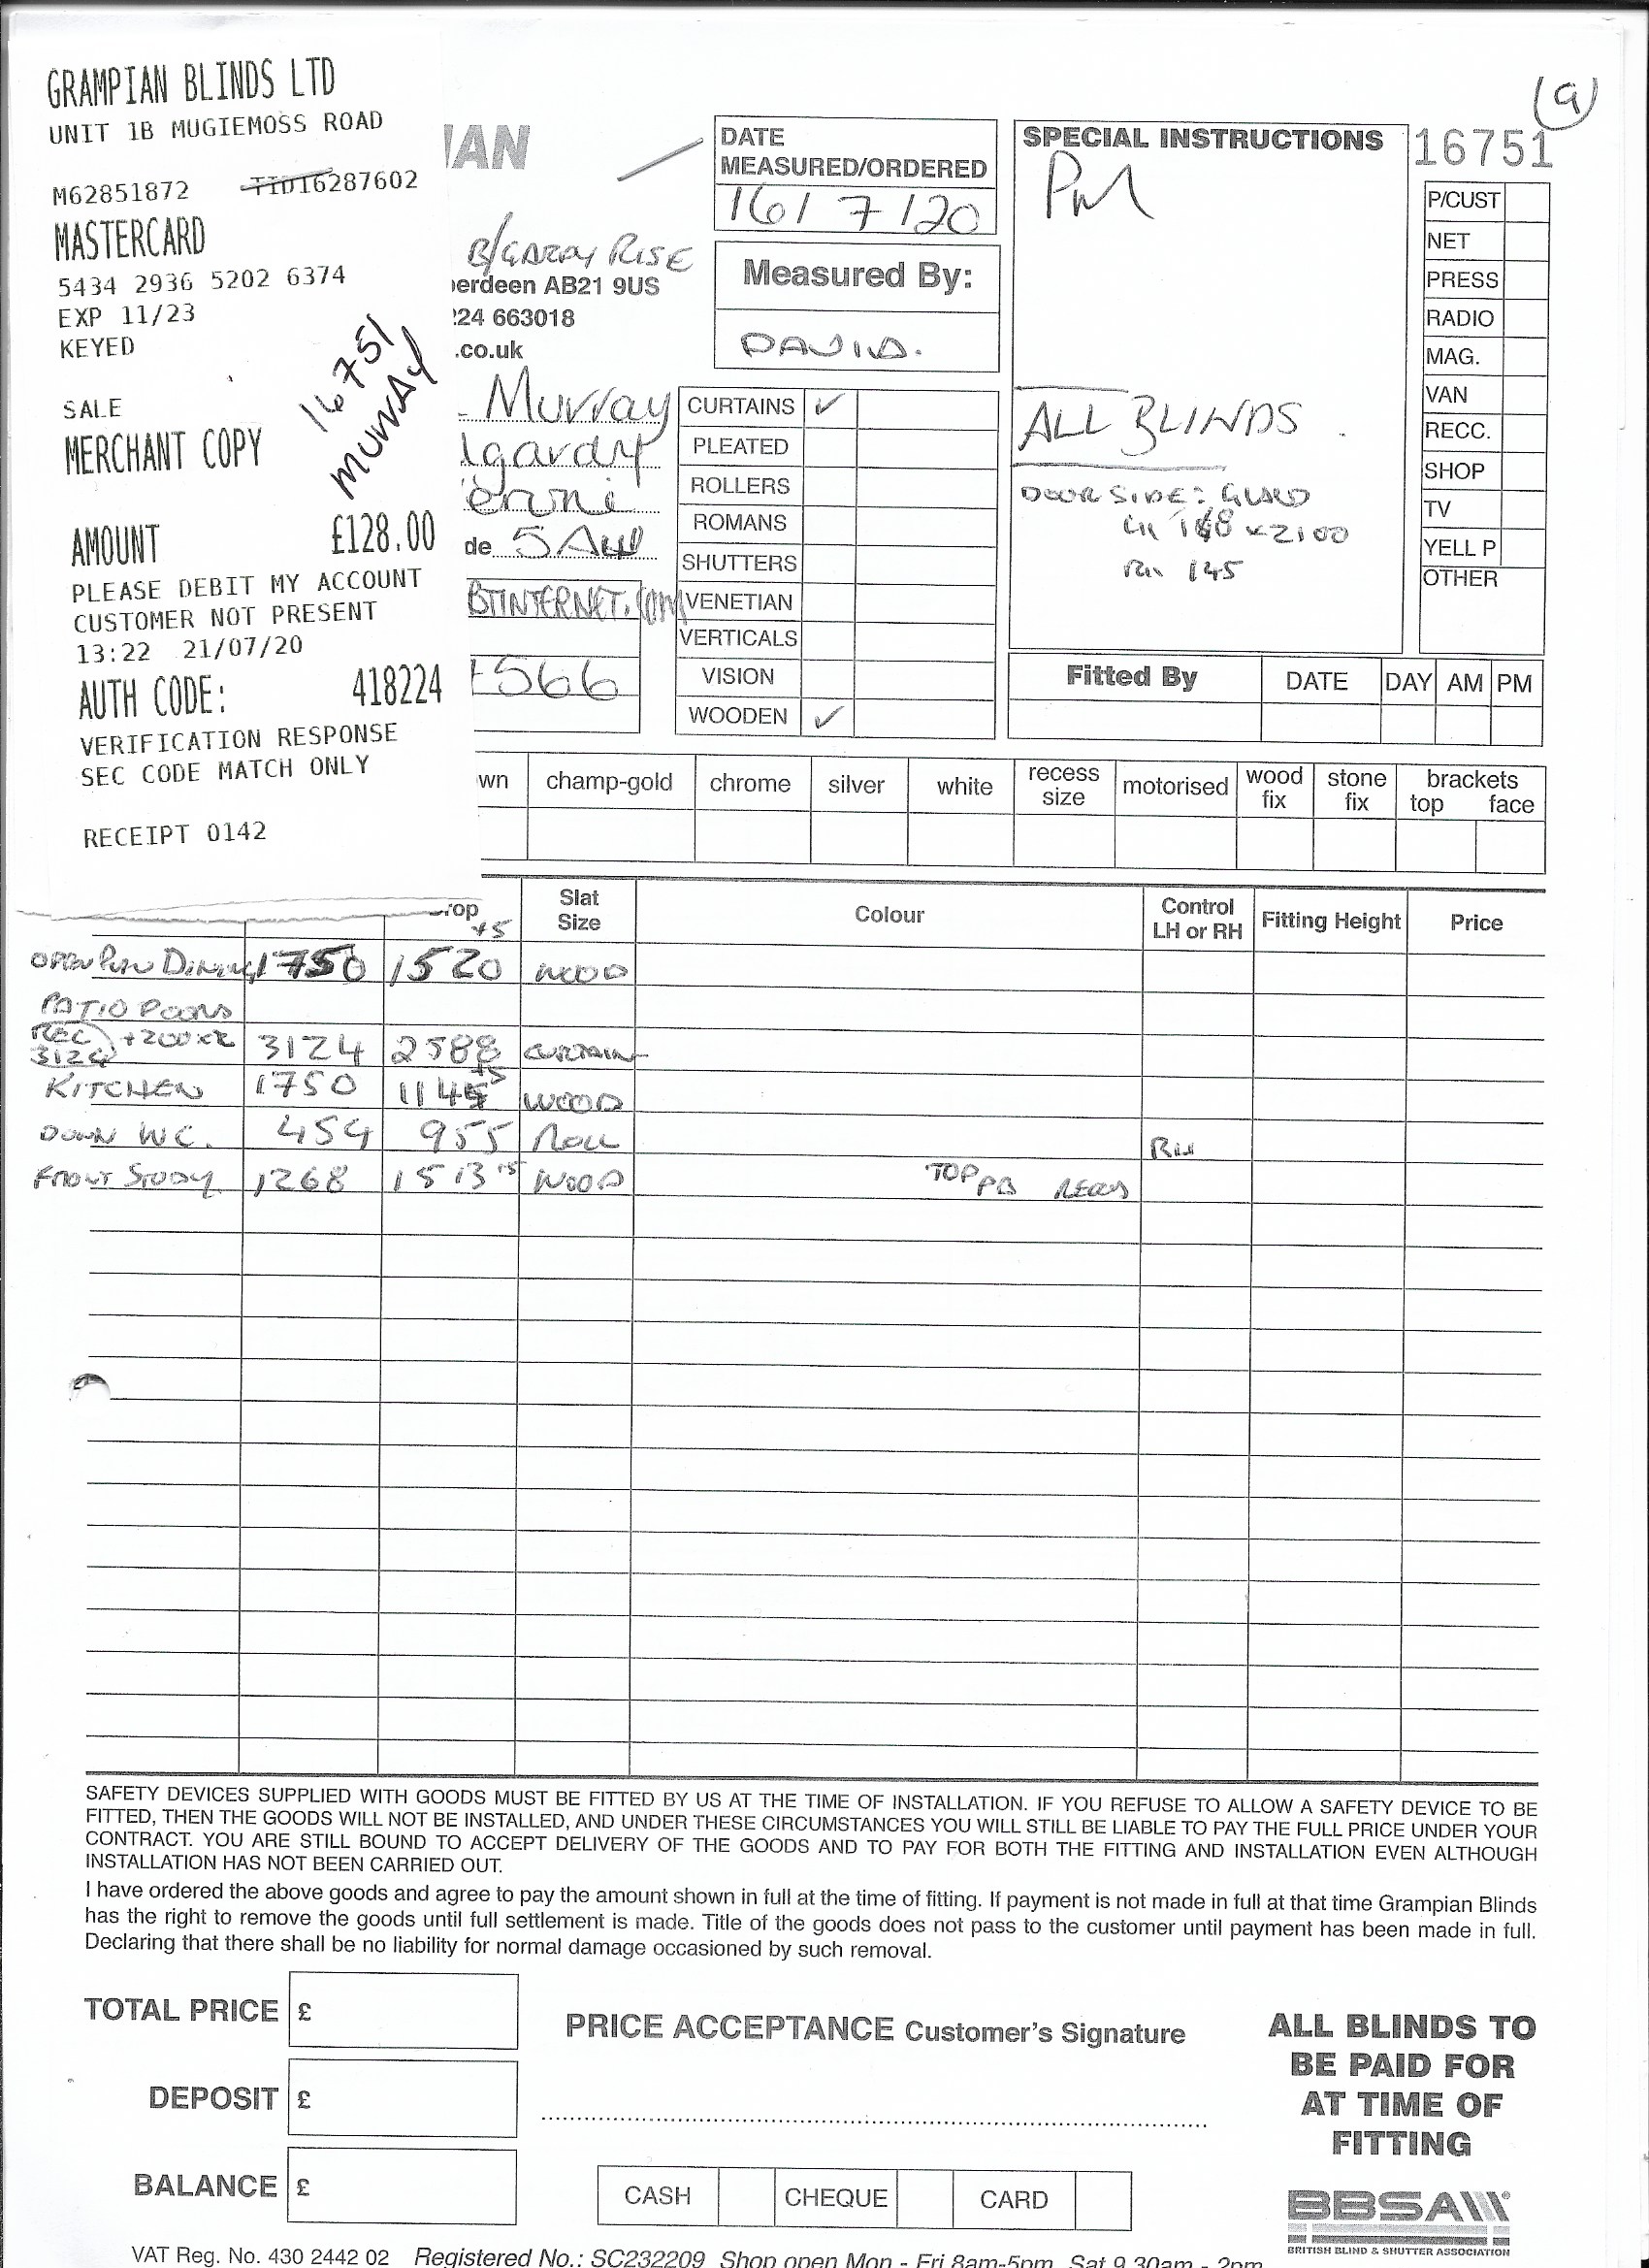 GRAMPIAN BLINDS LTD
UNIT 1B MUGIEMOSS ROAD
M62851872 TID16287602
MASTERCARD
5434 2936 5202 6374
EXP 11/23
KEYED
SALE
MERCHANT COPY
16751
MURRAY
AMOUNT £128.00
PLEASE DEBIT MY ACCOUNT
CUSTOMER NOT PRESENT
13:22 21/07/20
AUTH CODE: 418224
VERIFICATION RESPONSE
SEC CODE MATCH ONLY
RECEIPT 0142
IAN
RISE
berdeen AB21 9US
224 663018
.co.uk
Murray
lgardy
de
BTINTERNET.COM
566
DATE
MEASURED/ORDERED
16/7/20
Measured By:
DAVID.
CURTAINS ✓
PLEATED
ROLLERS
ROMANS
SHUTTERS
VENETIAN
VERTICALS
VISION
WOODEN ✓
SPECIAL INSTRUCTIONS
PM
ALL BLINDS
DOOR SIDE:
x 2100
145
(9)
16751
P/CUST
NET
PRESS
RADIO
MAG.
VAN
RECC.
SHOP
TV
YELL P
OTHER
Fitted By DATE DAY AM PM
wn champ-gold chrome silver white recess size motorised wood fix stone fix brackets top face
rop Slat Size Colour Control LH or RH Fitting Height Price
OPEN PLAN DINING 1750 1520 +5 WOOD
PATIO DOORS
REC 3124 +200x2 3124 2588 CURTAIN
KITCHEN 1750 1145 +5 WOOD
DOWN WC. 454 955 ROLL RH
FRONT STUDY 1268 1513 +5 WOOD TOP
SAFETY DEVICES SUPPLIED WITH GOODS MUST BE FITTED BY US AT THE TIME OF INSTALLATION. IF YOU REFUSE TO ALLOW A SAFETY DEVICE TO BE
FITTED, THEN THE GOODS WILL NOT BE INSTALLED, AND UNDER THESE CIRCUMSTANCES YOU WILL STILL BE LIABLE TO PAY THE FULL PRICE UNDER YOUR
CONTRACT. YOU ARE STILL BOUND TO ACCEPT DELIVERY OF THE GOODS AND TO PAY FOR BOTH THE FITTING AND INSTALLATION EVEN ALTHOUGH
INSTALLATION HAS NOT BEEN CARRIED OUT.
I have ordered the above goods and agree to pay the amount shown in full at the time of fitting. If payment is not made in full at that time Grampian Blinds
has the right to remove the goods until full settlement is made. Title of the goods does not pass to the customer until payment has been made in full.
Declaring that there shall be no liability for normal damage occasioned by such removal.
TOTAL PRICE £
DEPOSIT £
BALANCE £
PRICE ACCEPTANCE Customer's Signature
CASH CHEQUE CARD
ALL BLINDS TO
BE PAID FOR
AT TIME OF
FITTING
BBSA
BRITISH BLIND & SHUTTER ASSOCIATION
VAT Reg. No. 430 2442 02 Registered No.: SC232209 Shop open Mon - Fri 8am-5pm Sat 9.30am - 2pm